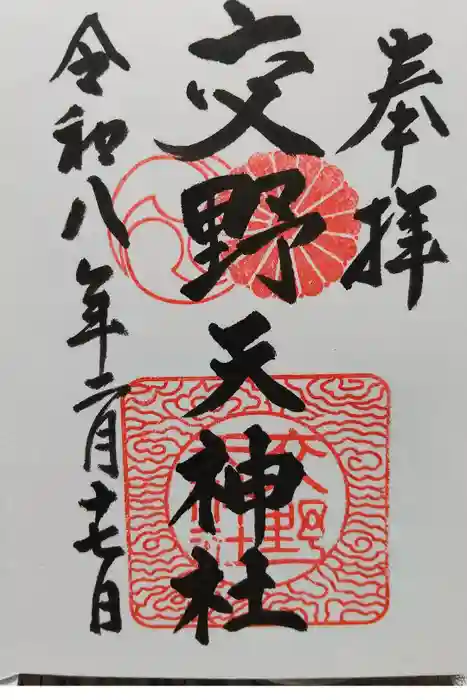 奉拝
交野天神社
令和八年二月十七日
交野
天神社